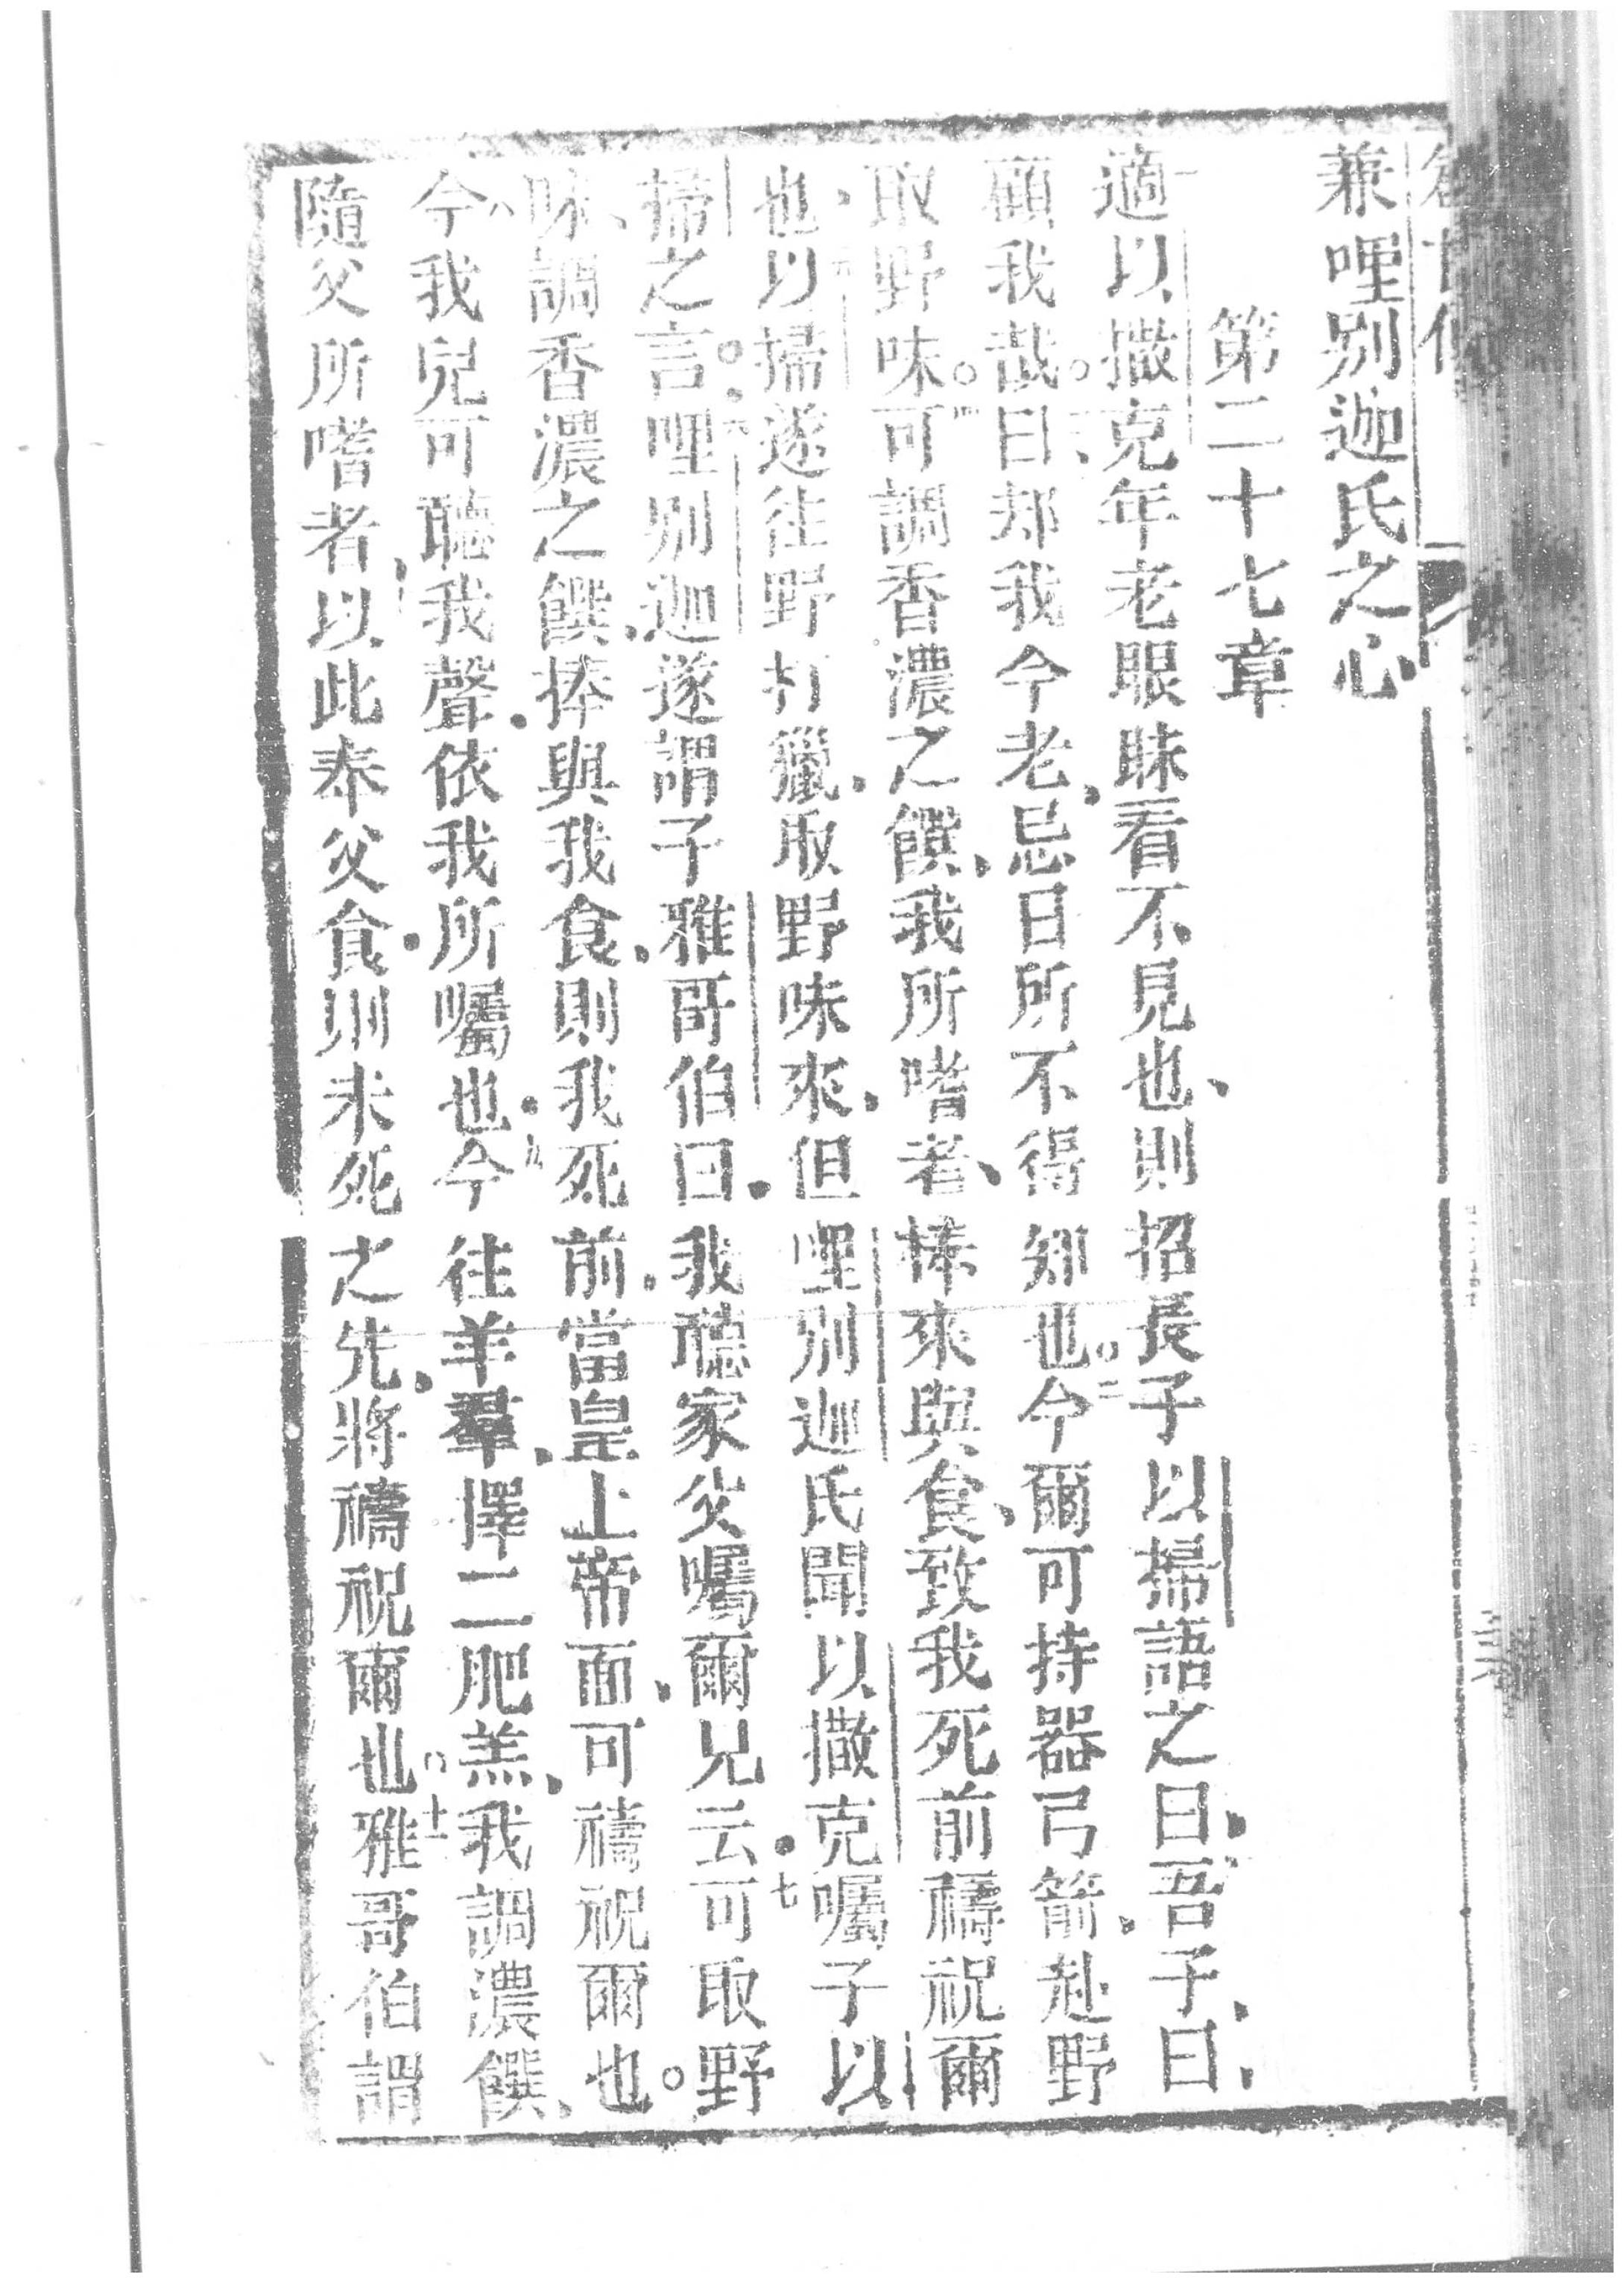 兼哩别迦氏之心、
第二十七章
適以撒克年老眼昧看不見也、則招長子以掃語之曰、吾子、曰、
顧我哉。曰、却我今老、忌日所不得知也。今爾可持器弓箭、赴野
取野味。四可調香濃之饌、我所嗜者、捧來與食、致我死前禱祝爾
也、以掃遂往野打獵、取野味來、但哩别迦氏聞以撒克囑子以
掃之言。哩别迦遂謂子雅哥伯曰、我聽家父囑爾兄云、七可取野
味、調香濃之饌、捧與我食、則我死前、當皇上帝面、可禱祝爾也。
八今我兒可聽我聲、依我所囑也、九今往羊羣、擇二肥羔、我調濃饌、
隨父所嗜者、以此奉父食、則未死之先、將禱祝爾也。十一雅哥伯謂